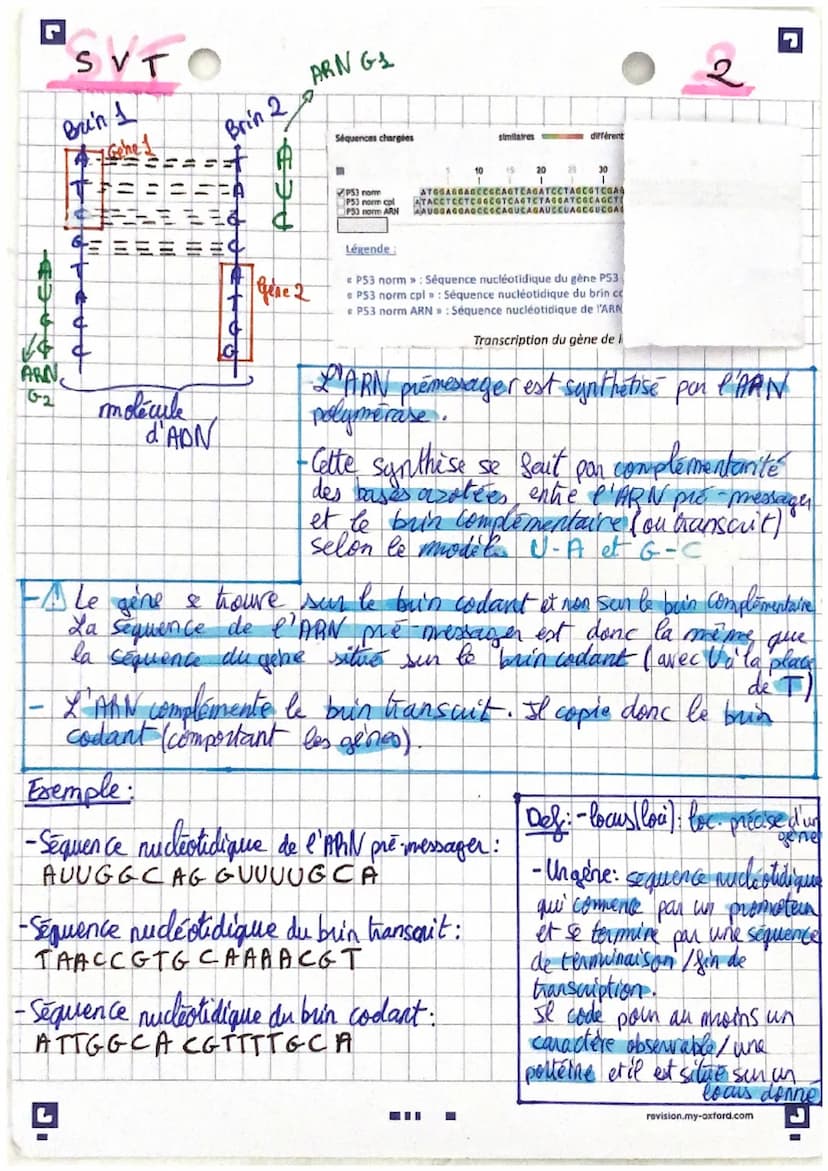 SVT
2
ARN G1
Brin 1
Brin 2
Gène 1
A
T
C
G
T
A
C
C
T
A
G
C
A
T
G
G
A
U
C
A
U
G
G
Gène 2
ARN
G2
molécule
d'ADN
Séquences chargées
similaires
différent
5 10 15 20 25 30
P53 norm ATGGAGGAGCCGCAGTCAGATCCTAGCGTCGAG
P53 norm cpl ATACCTCCTCGGCGTCAGTCTAGGATCGCAGCTC
P53 norm ARN AAUGGAGGAGCCGCAGUCAGAUCCUAGCGUCGAG
Légende :
« P53 norm » : Séquence nucléotidique du gène P53
« P53 norm cpl » : Séquence nucléotidique du brin co
« P53 norm ARN » : Séquence nucléotidique de l'ARN
Transcription du gène de l
L'ARN prémessager est synthétisé par l'ARN
polymérase.
- Cette synthèse se fait par complémentarité
des bases azotées entre l'ARN pré-messager
et le brin complémentaire (ou transcrit)
selon le modèle U-A et G-C
- ⚠ Le gène se trouve sur le brin codant et non sur le brin complémentaire
La séquence de l'ARN pré-messager est donc la même que
la séquence du gène situé sur le brin codant (avec U à la place
de T)
- L'ARN complémente le brin transcrit. Il copie donc le brin
codant (comportant les gènes).
Exemple :
- Séquence nucléotidique de l'ARN pré-messager :
AUUGGCAGGUUUUGCA
- Séquence nucléotidique du brin transcrit :
TAACCGTGCAAAACGT
- Séquence nucléotidique du brin codant :
ATTGGCACGTTTTGCA
Def : - locus (loci) : loc. précise d'un
gène
- Un gène : séquence nucléotidique
qui commence par un promoteur
et se termine par une séquence
de terminaison / fin de
transcription.
Il code pour au moins un
caractère observable / une
protéine et il est situé sur un
locus donné
revision.my-oxford.com